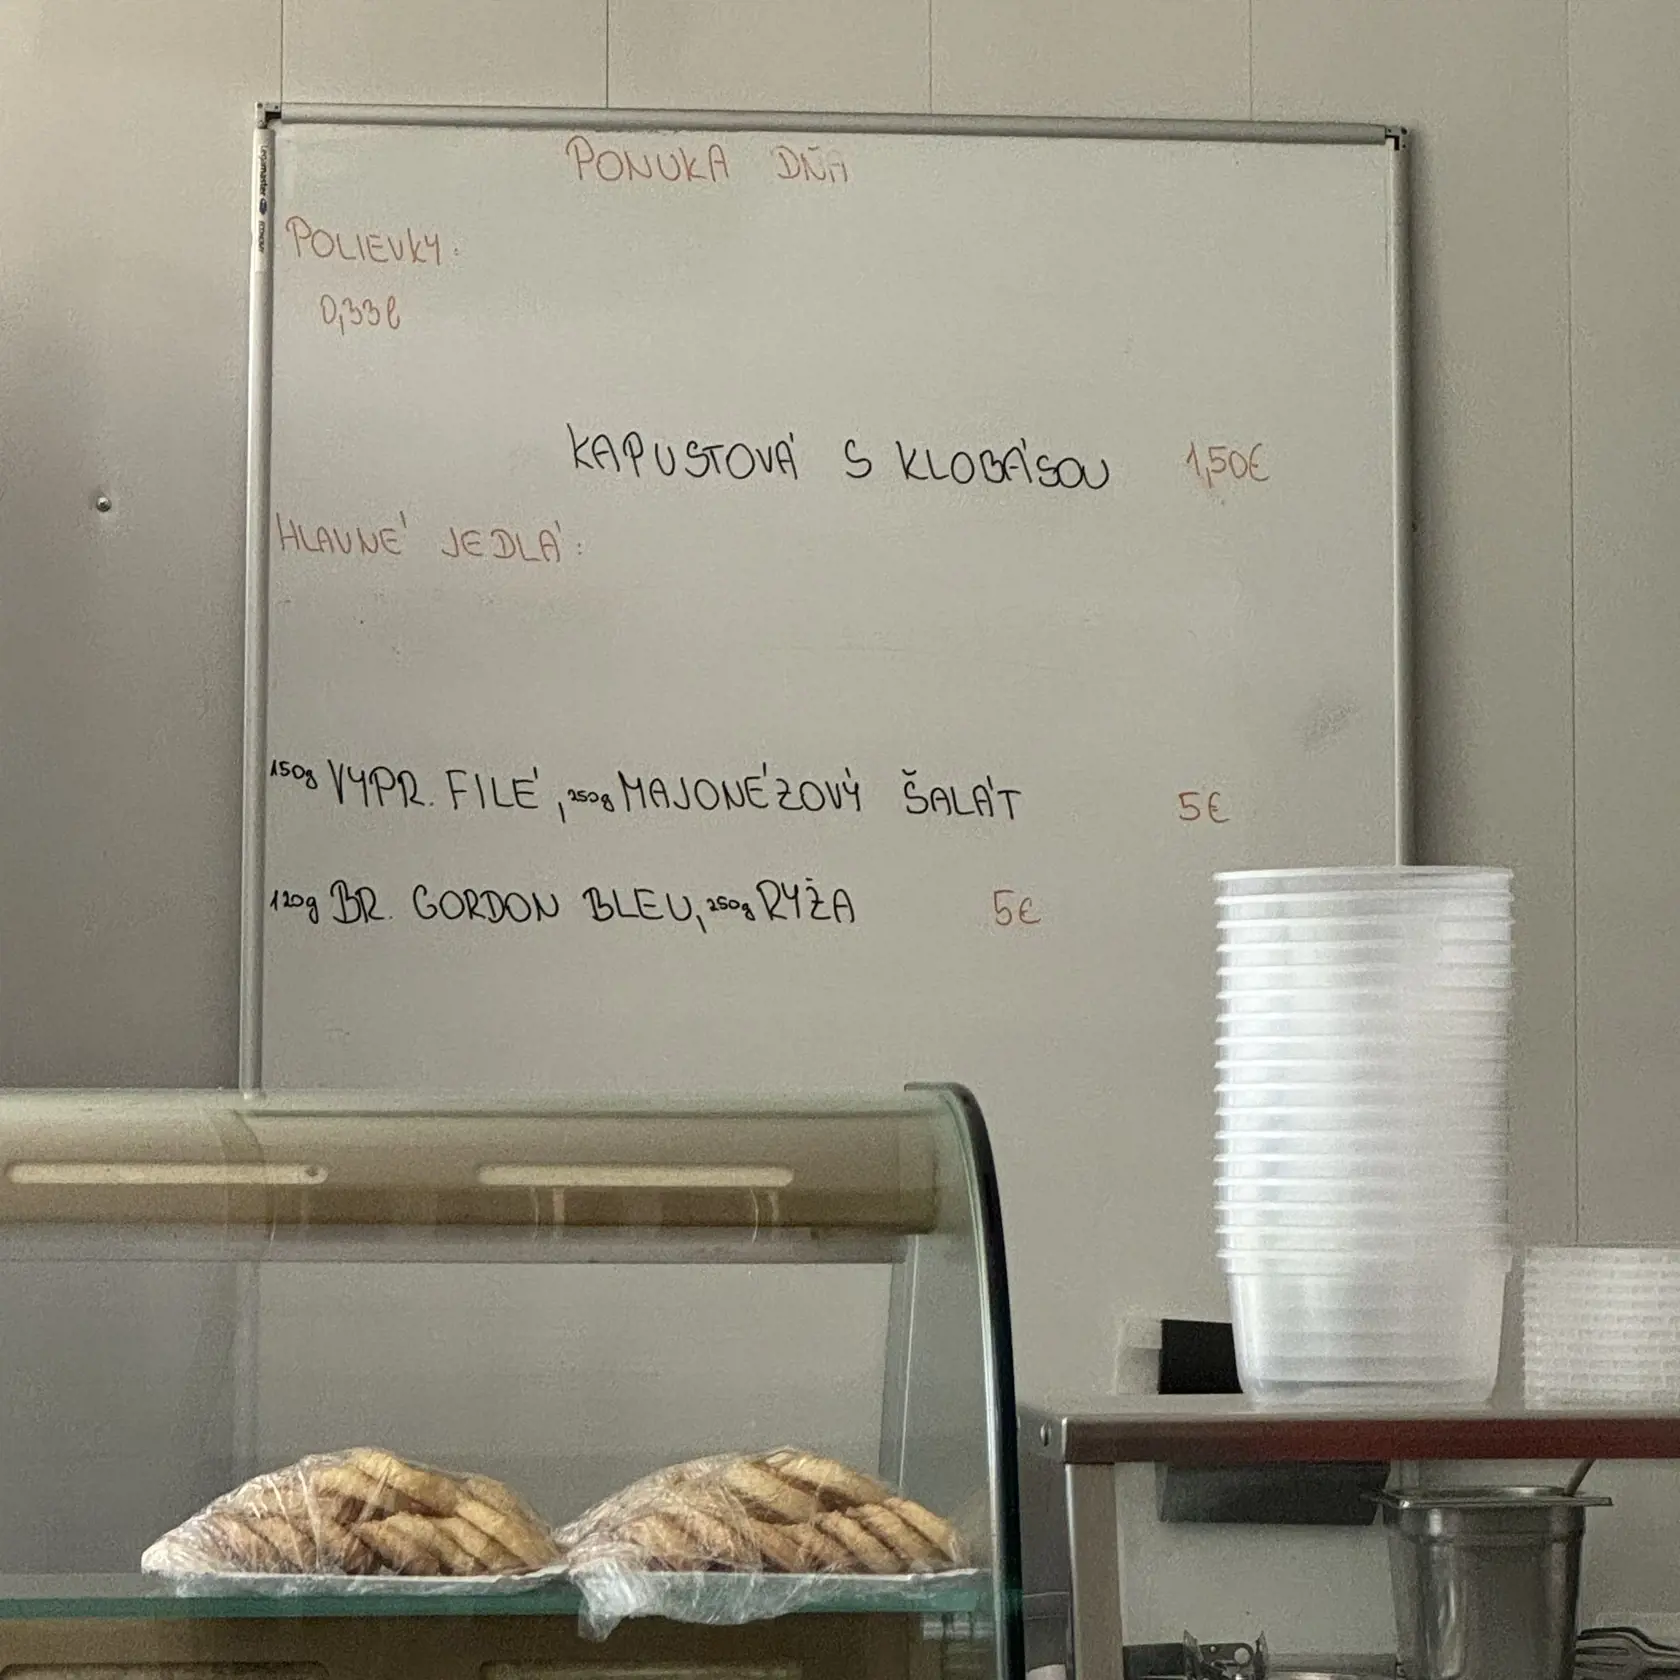 PONUKA DŇA
POLIEVKY:
0,33l
KAPUSTOVÁ S KLOBÁSOU 1,50€
HLAVNÉ JEDLÁ:
150g VYPR. FILÉ, 250g MAJONÉZOVÝ ŠALÁT 5€
120g BR. GORDON BLEU, 250g RYŻA 5€
Legamaster